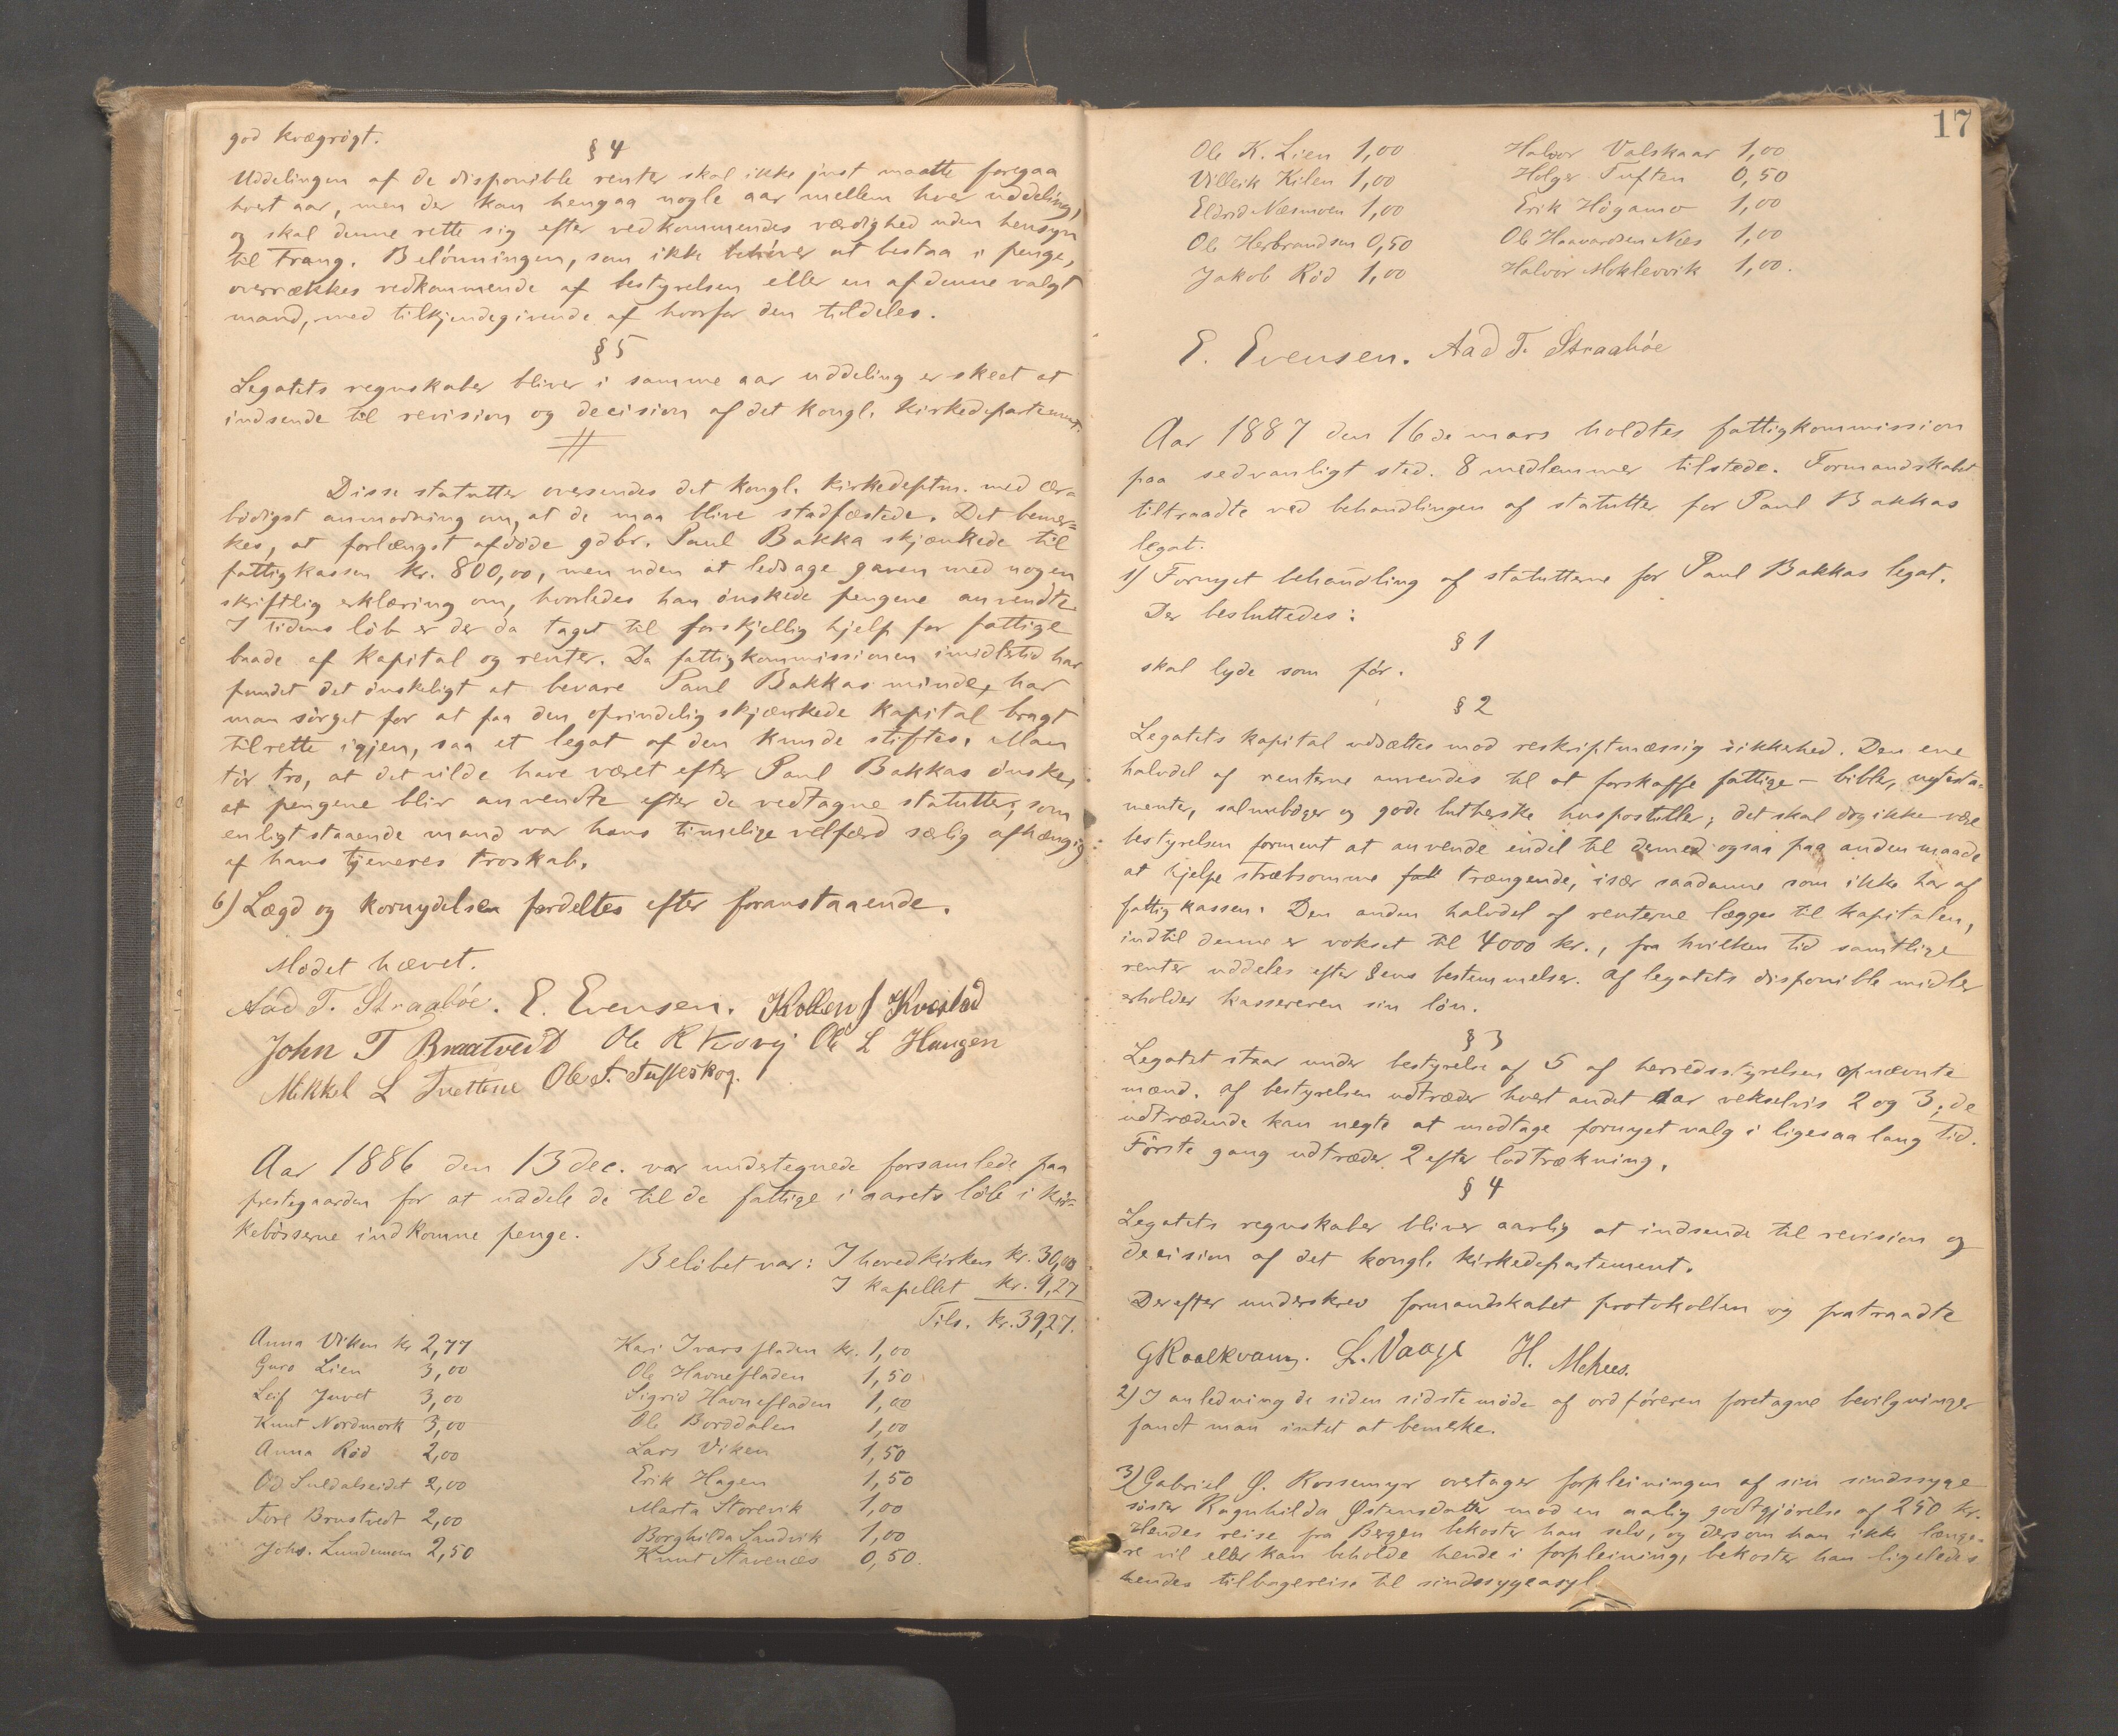 god kvægrögt.
§ 4
Uddelingen af de disponible renter skal ikke just maatte foregaa
hvert aar, men der kan hengaa nogle aar mellem hver uddeling,
og skal denne rette sig efter vedkommendes værdighed uden hensyn
til trang. Belönningen, som ikke behöver at bestaa i penge,
overrækkes vedkommende af bestyrelsen eller en af denne valgt
mand, med tilkjendegivende af hvorfor den tildeles.
§ 5
Legatets regnskaber bliver i samme aar uddeling er skeet at
indsende til revision og decision af det kongl. Kirkedepartement.
Disse statutter oversendes det kongl. Kirkedeptm. med ær=
bödigst anmodning om, at de maa blive stadfæstede. Det bemer=
kes, at forlængst afdöde gdbr. Paul Bakka skjænkede til
fattigkassen kr. 800,00, men uden at ledsage gaven med nogen
skriftlig erklæring om, hvorledes han önskede pengene anvendte.
I tidens löb er der da taget til forskjellig hjelp for fattige
baade af kapital og renter. Da fattigkommissionen imidlertid har
fundet det önskeligt at bevare Paul Bakkas minde, har
man sörget for at faa den oprindelig skjænkede kapital bragt
tilrette igjen, saa et legat af den kunde stiftes. Man
tör tro, at det vilde have været efter Paul Bakkas önske,
at pengene blir anvendte efter de vedtagne statutter, som
enligt staaende mand var hans timelige velfærd særlig afhængig
af hans tjeneres troskab.
6) Lægd og kornydelsen fordeltes efter foranstaaende.
Mödet hævet.
Aad T. Straaböe. E. Evensen. Kolben J Kvestad
John T Braatvedt Ole R Ole L Haugen
Mikkel L Tvettene Ole T. Tufteskog.
Aar 1886 den 13 dec. var undertegnede forsamlede paa
prestegaarden for at uddele de til de fattige i aarets löb i kir=
kebösserne indkomne penge.
Belöbet var: I hovedkirken kr. 30,00
I kapellet kr. 9,27
Tils. kr. 39,27.
Anna Viken kr 2,77 Kari Ivarsfladen kr. 1,00
Guro Lien 3,00 Ole Havnefladen 1,50
Leif Juvet 3,00 Sigrid Havnefladen 1,00
Knut Nordmork 3,00 Ole Borddalen 1,00
Anna Röd 2,00 Lars Viken 1,50
Od Suldalseidet 2,00 Erik Hagen 1,50
Tore Brustvedt 2,00 Marta Storevik 1,00
Johs. Lundemoen 2,50 Borghilda Sandvik 1,00
Knut Stavenæs 0,50.
17
Ole K. Lien 1,00 Halvor Valskaar 1,00
Villeik Kilen 1,00 Holger Tuften 0,50
Eldrid Næsmoen 1,00 Erik Högamo 1,00
Ole Herbrandsen 0,50 Ole Haavardsen Næs 1,00
Jakob Röd 1,00 Halvor Moklevvik 1,00.
E. Evensen. Aad T. Straaböe
Aar 1887 den 16de mars holdtes fattigkommission
paa sedvanligt sted. 8 medlemmer tilstede. Formandskabet
tiltraadte ved behandlingen af statutter for Paul Bakkas
legat.
1) Fornyet behandling af statutterne for Paul Bakkas legat.
Der besluttedes:
§ 1
skal lyde som för.
§ 2
Legatets kapital udsættes mod reskriptmæssig sikkerhed. Den ene
halvdel af renterne anvendes til at forskaffe fattige – bibler, nytesta=
menter, salmeböger og gode lutherske huspostiller; det skal dog ikke være
bestyrelsen forment at anvende endel til dermed ogsaa paa anden maade
at hjelpe stræbsomme trængende, især saadanne som ikke har af
fattigkassen. Den anden halvdel af renterne lægges til kapitalen,
indtil denne er vokset til 4000 kr., fra hvilken tid samtlige
renter uddeles efter §ens bestemmelser. Af legatets disponible midler
erholder kassereren sin lön.
§ 3
Legatet staar under bestyrelse af 5 af herredsstyrelsen opnævnte
mænd. Af bestyrelsen udtræder hvert andet aar vekselvis 2 og 3; de
udtrædende kan negte at modtage fornyet valg i ligesaa lang tid.
Förste gang udtræder 2 efter lodtrækning.
§ 4
Legatets regnskaber bliver aarlig at indsende til revision og
decision af det kongl. kirkedepartement.
Derefter underskrev formandskabet protokollen og fratraadte
G Raalkvam. L. Vaage H. Mehus.
2) I anledning de siden sidste möde af ordföreren foretagne bevilgninger
fandt man intet at bemerke.
3) Gabriel Ø. Rossemyr overtager forpleiningen af sin sindssyge
söster Ragnhilda Østensdatter mod en aarlig godtgjörelse af 240 kr.
Hendes reise fra Bergen bekoster han selv, og dersom han ikke længe=
re vil eller kan beholde hende i forpleining, bekoster han ligeledes
hendes tilbagereise til sindssygeasyl.